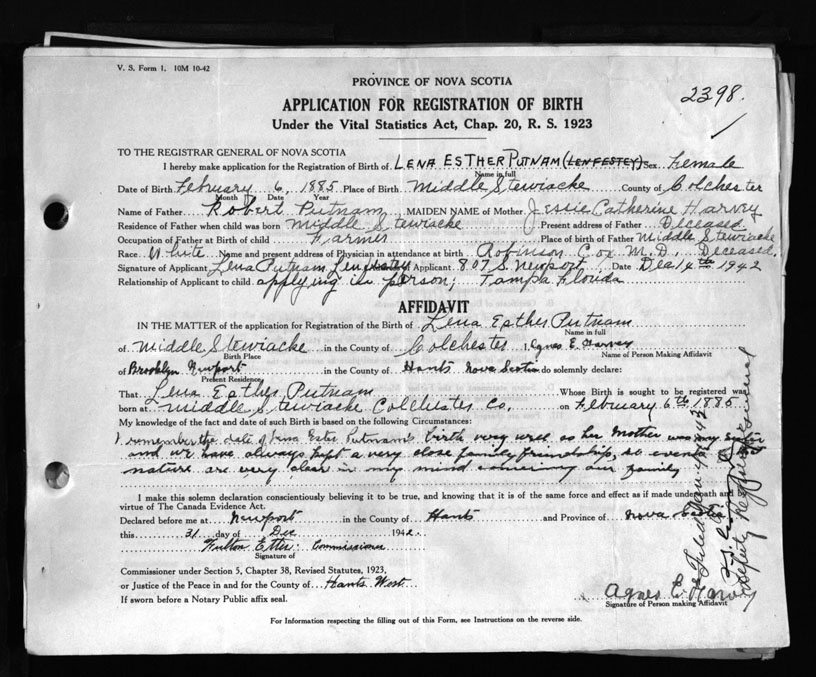 V. S. Form 1. 10M 10-42
PROVINCE OF NOVA SCOTIA
2398.
APPLICATION FOR REGISTRATION OF BIRTH
Under the Vital Statistics Act, Chap. 20, R. S. 1923
TO THE REGISTRAR GENERAL OF NOVA SCOTIA
I hereby make application for the Registration of Birth of LENA ESTHER PUTNAM (LENFESTEY) Sex Female
Name in full
Date of Birth February 6, 1885 Place of Birth Middle Stewiacke County of Colchester
Month Date Year
Name of Father Robert Putnam MAIDEN NAME of Mother Jessie Catherine Harvey
Residence of Father when child was born Middle Stewiacke Present address of Father Deceased
Occupation of Father at Birth of child Farmer Place of birth of Father Middle Stewiacke
Race White Name and present address of Physician in attendance at birth Robinson Cox M.D. Deceased.
Signature of Applicant Lena Putnam Lenfestey Applicant 807 S Newport Date Dec 14th 1942
Relationship of Applicant to child applying in person; Tampa Florida
AFFIDAVIT
IN THE MATTER of the application for Registration of the Birth of Lena Esther Putnam
Name in full
of Middle Stewiacke in the County of Colchester I, Agnes E. Harvey
Birth Place Name of Person Making Affidavit
of Brooklyn Newport in the County of Hants Nova Scotia do solemnly declare:
Present Residence
That Lena Esther Putnam Whose Birth is sought to be registered was
born at Middle Stewiacke Colchester Co. on February 6th 1885
My knowledge of the fact and date of such Birth is based on the following Circumstances:
I remember the date of Lena Ester Putnam's birth very well as her Mother was my sister
and we have always kept a very close family friendship, so events
nature are very clear in my mind concerning our family
I make this solemn declaration conscientiously believing it to be true, and knowing that it is of the same force and effect as if made under oath and by
virtue of The Canada Evidence Act.
Declared before me at Newport in the County of Hants and Province of Nova Scotia
this 31 day of Dec 1942.
Fulton Etter Commissioner
Signature of
Commissioner under Section 5, Chapter 38, Revised Statutes, 1923,
or Justice of the Peace in and for the County of Hants West
If sworn before a Notary Public affix seal.
Agnes E. Harvey
Signature of Person making Affidavit
For Information respecting the filling out of this Form, see Instructions on the reverse side.
Filed Jan 4 1943
Deputy Registrar General